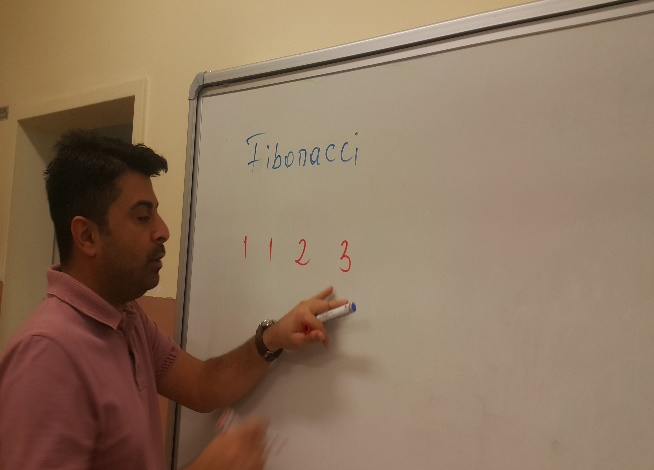 Fibonacci
1 1 2 3